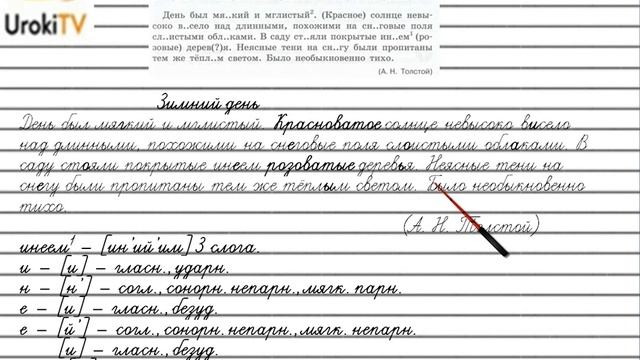 UrokiTV
День был мя..кий и мглистый². (Красное) солнце невы-
соко в..село над длинными, похожими на сн..говые поля
сл..истыми обл..ками. В саду ст..яли покрытые ин..ем¹ (ро-
зовые) дерев(?)я. Неясные тени на сн..гу были пропитаны
тем же тёпл..м светом. Было необыкновенно тихо.
(А. Н. Толстой)
Зимний день
День был мягкий и мглистый. Красноватое солнце невысоко висело
над длинными, похожими на снеговые поля слоистыми облаками. В
саду стояли покрытые инеем розоватые деревья. Неясные тени на
снегу были пропитаны тем же тёплым светом. Было необыкновенно
тихо.
(А. Н. Толстой)
инеем¹ – [ин'ий'им] 3 слога.
и – [и] – гласн., ударн.
н – [н'] – согл., сонорн. непарн., мягк. парн.
е – [и] – гласн., безуд.
е – [й'] – согл., сонорн. непарн., мягк. непарн.
[и] – гласн., безуд.